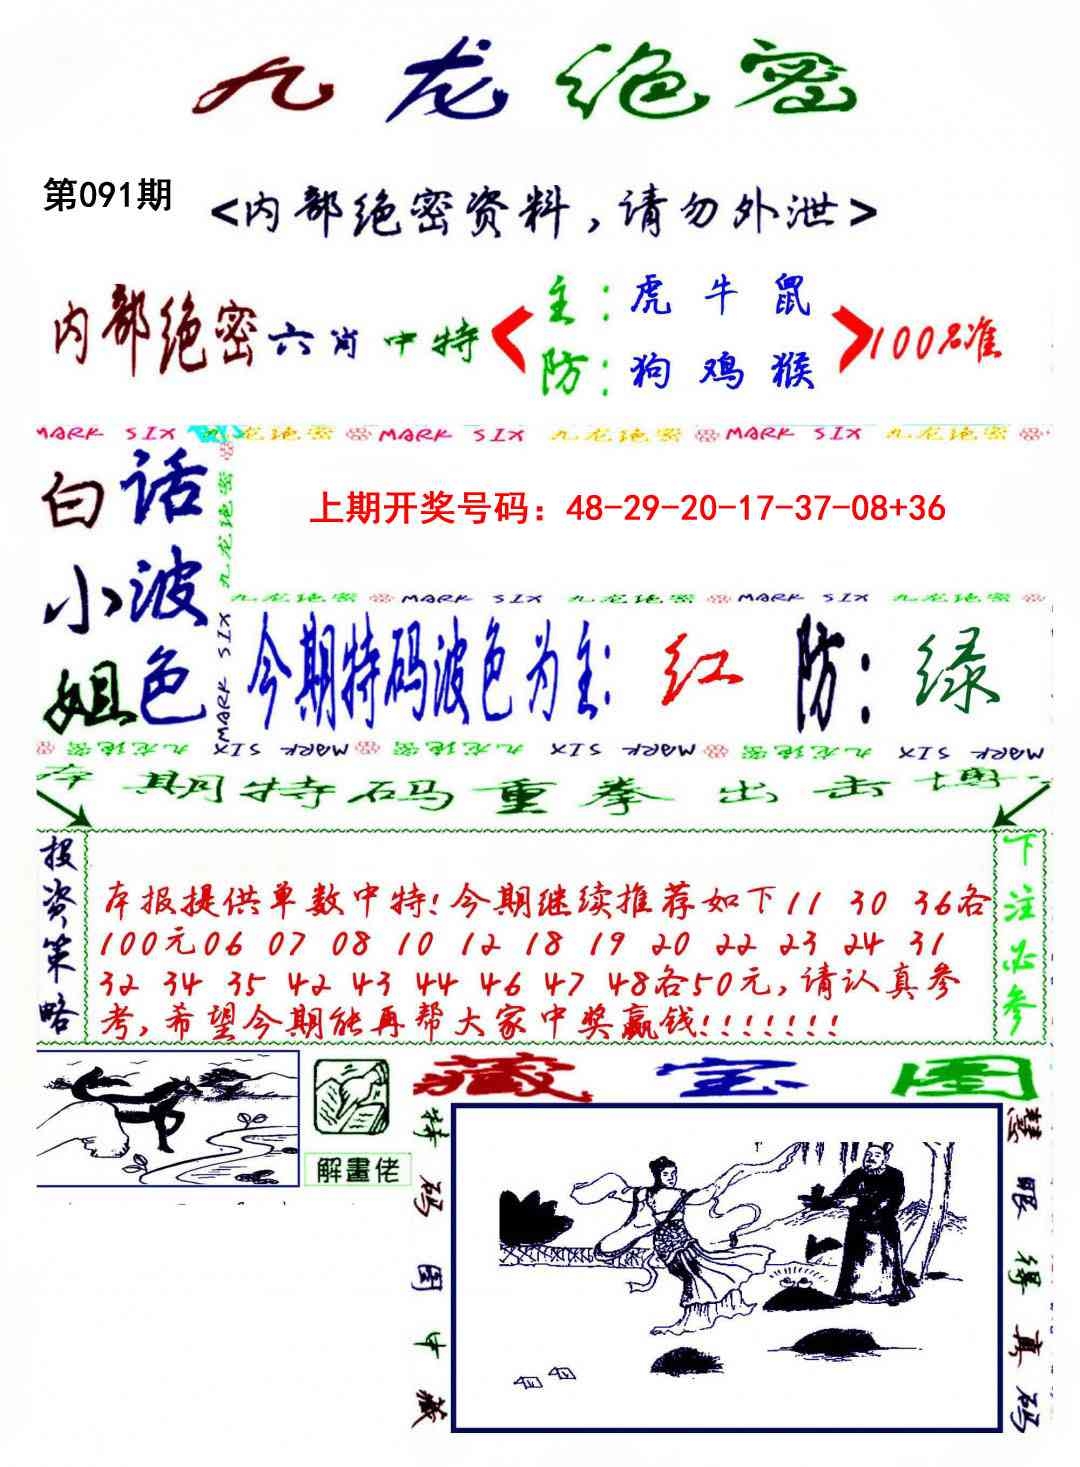 九龙绝密
第091期
<内部绝密资料，请勿外泄>
内部绝密六肖中特
主：虎 牛 鼠
防：狗 鸡 猴
100%准
MARK SIX 九龙绝密 MARK SIX 九龙绝密 MARK SIX 九龙绝密
白话小波姐色
九龙绝密
MARK SIX
上期开奖号码：48-29-20-17-37-08+36
九龙绝密 MARK SIX 九龙绝密 MARK SIX 九龙绝密
今期特码波色为主：红 防：绿
九龙绝密 MARK SIX 九龙绝密 MARK SIX 九龙绝密 MARK SIX
本期特码重拳出击博
投资策略
本报提供单数中特!今期继续推荐如下11 30 36各
100元06 07 08 10 12 18 19 20 22 23 24 31
32 34 35 42 43 44 46 47 48各50元,请认真参
考,希望今期能再帮大家中奖赢钱!!!!!!!
下注必参
解畫佬
藏宝图
特码图中藏
慧眼得真码